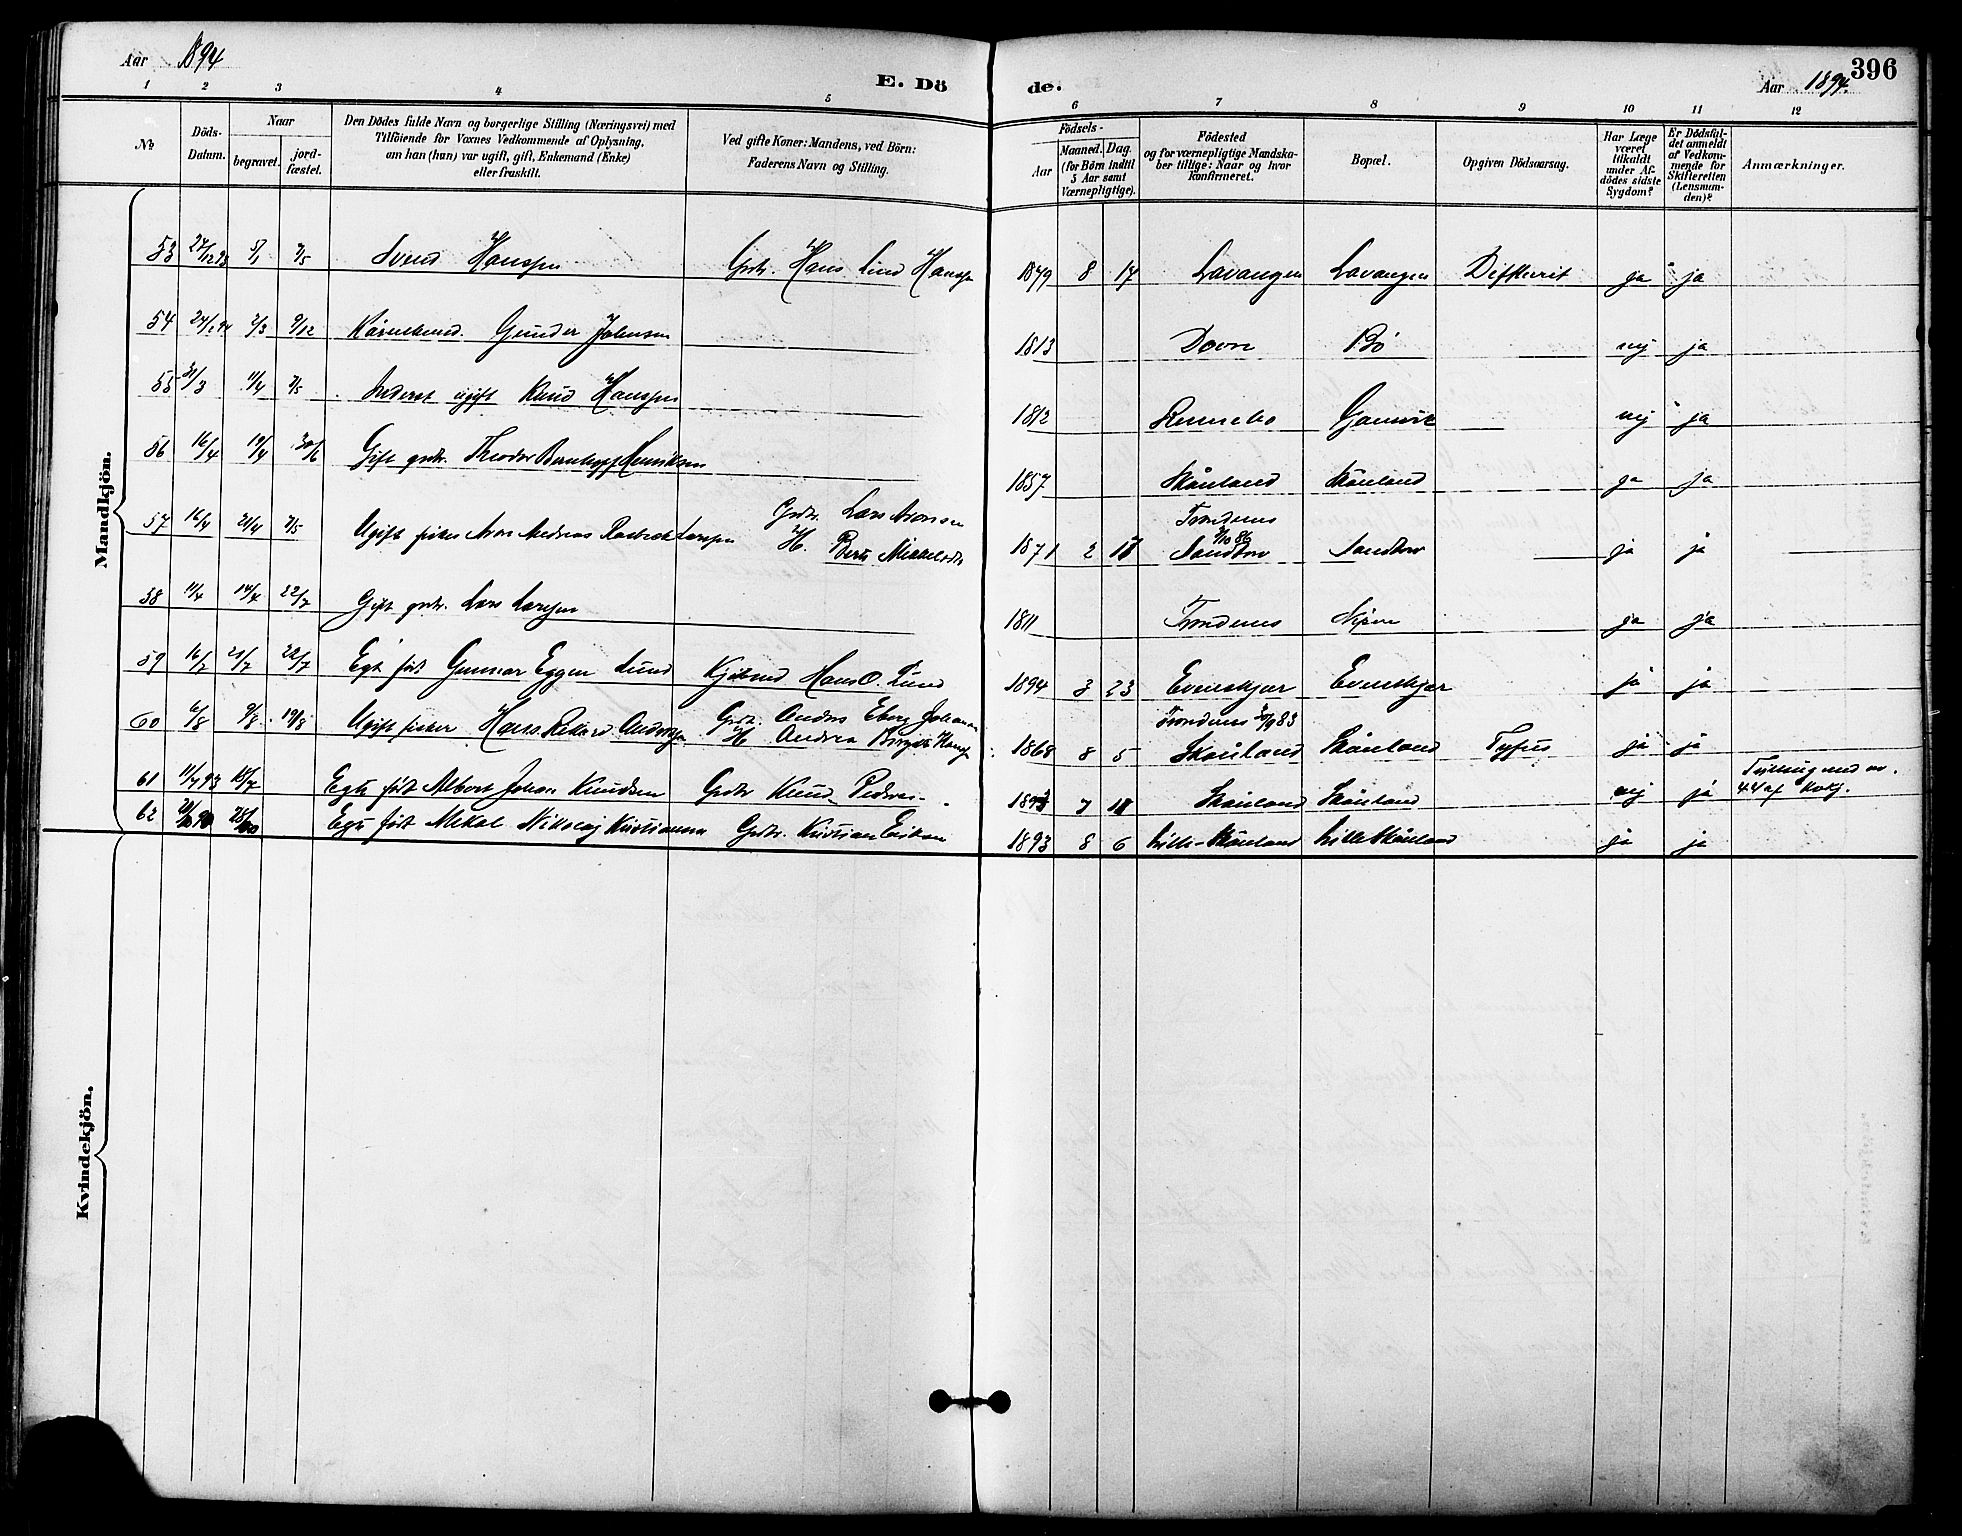 Aar 1894
E. Döde.
Aar 1894.
396
1 2 3 4 5 6 7 8 9 10 11 12
№
Döds-Datum.
Naar
begravet.
jord-fæstet.
Den Dödes fulde Navn og borgerlige Stilling (Næringsvei) med
Tilföiende for Voxnes Vedkommende af Oplysning,
om han (hun) var ugift, gift, Enkemand (Enke)
eller fraskilt.
Ved gifte Koner: Mandens, ved Börn:
Faderens Navn og Stilling.
Födsels-
Aar
Maaned. Dag.
(for Börn indtil
5 Aar samt
Værnepligtige).
Födested
og for værnepligtige Mandska-
ber tillige: Naar og hvor
konfirmeret.
Bopæl.
Opgiven Dödsaarsag.
Har Læge
været
tilkaldt
under Af-
dödes sidste
Sygdom?
Er Dödsfal-
det anmeldt
af Vedkom-
mende for
Skifteretten
(Lensman-
den)?
Anmærkninger.
Mandkjön.
53 27/12 93 5/1 7/5 Svend Hanssen Grdr. Hans Lind Hanssen 1879 8 17 Lavangen Lavangen Difterit ja ja
54 24/2 94 2/3 9/12 Kårmand. Gunder Johnsen 1813 Dovre Bö nej ja
55 31/3 11/4 7/5 Inderst ugift Knud Hanssen 1812 Rennebo Gamvik nej ja
56 16/4 19/4 30/6 Gift grdr. Theodor Henriksen 1857 Skånland Skånland ja ja
57 16/4 21/4 7/5 Ugift fisker Aron Andreas Larssen Grdr. Lars Aronsen
H. Berit Mikkelsdtr 1871 2 Trondenes
2/10 86
Sandtorv Sandtorv ja ja
58 11/4 14/4 22/7 Gift grdr. Lars Larssen 1811 Trondenes ja ja
59 16/7 21/7 22/7 Egt. född Gunnar Eggen Lund Kjöbmd Hans O. Lund 1894 3 23 Evenskjær Evenskjær ja ja
60 6/8 9/8 19/8 Ugift fisker Hans Rikard Anderssen Grdr. Anders Eberg Johansen
H Andrea Birgitte 1868 8 5 Trondenes 30/9 83
Skånland Skånland Tyfus ja ja
61 11/7 93 15/7 Egte född Albert Johan Knudsen Grdr Knud Pedersen 1893 7 11 Skånland Skånland nej ja Tvilling med nr.
44 af kvkj.
62 25/10 Egte född Mikal Nikolaj Kristiansen Grdr. Kristian Eriksen 1893 8 6 Lille-Skånland Lille Skånland ja ja
Kvindekjön.